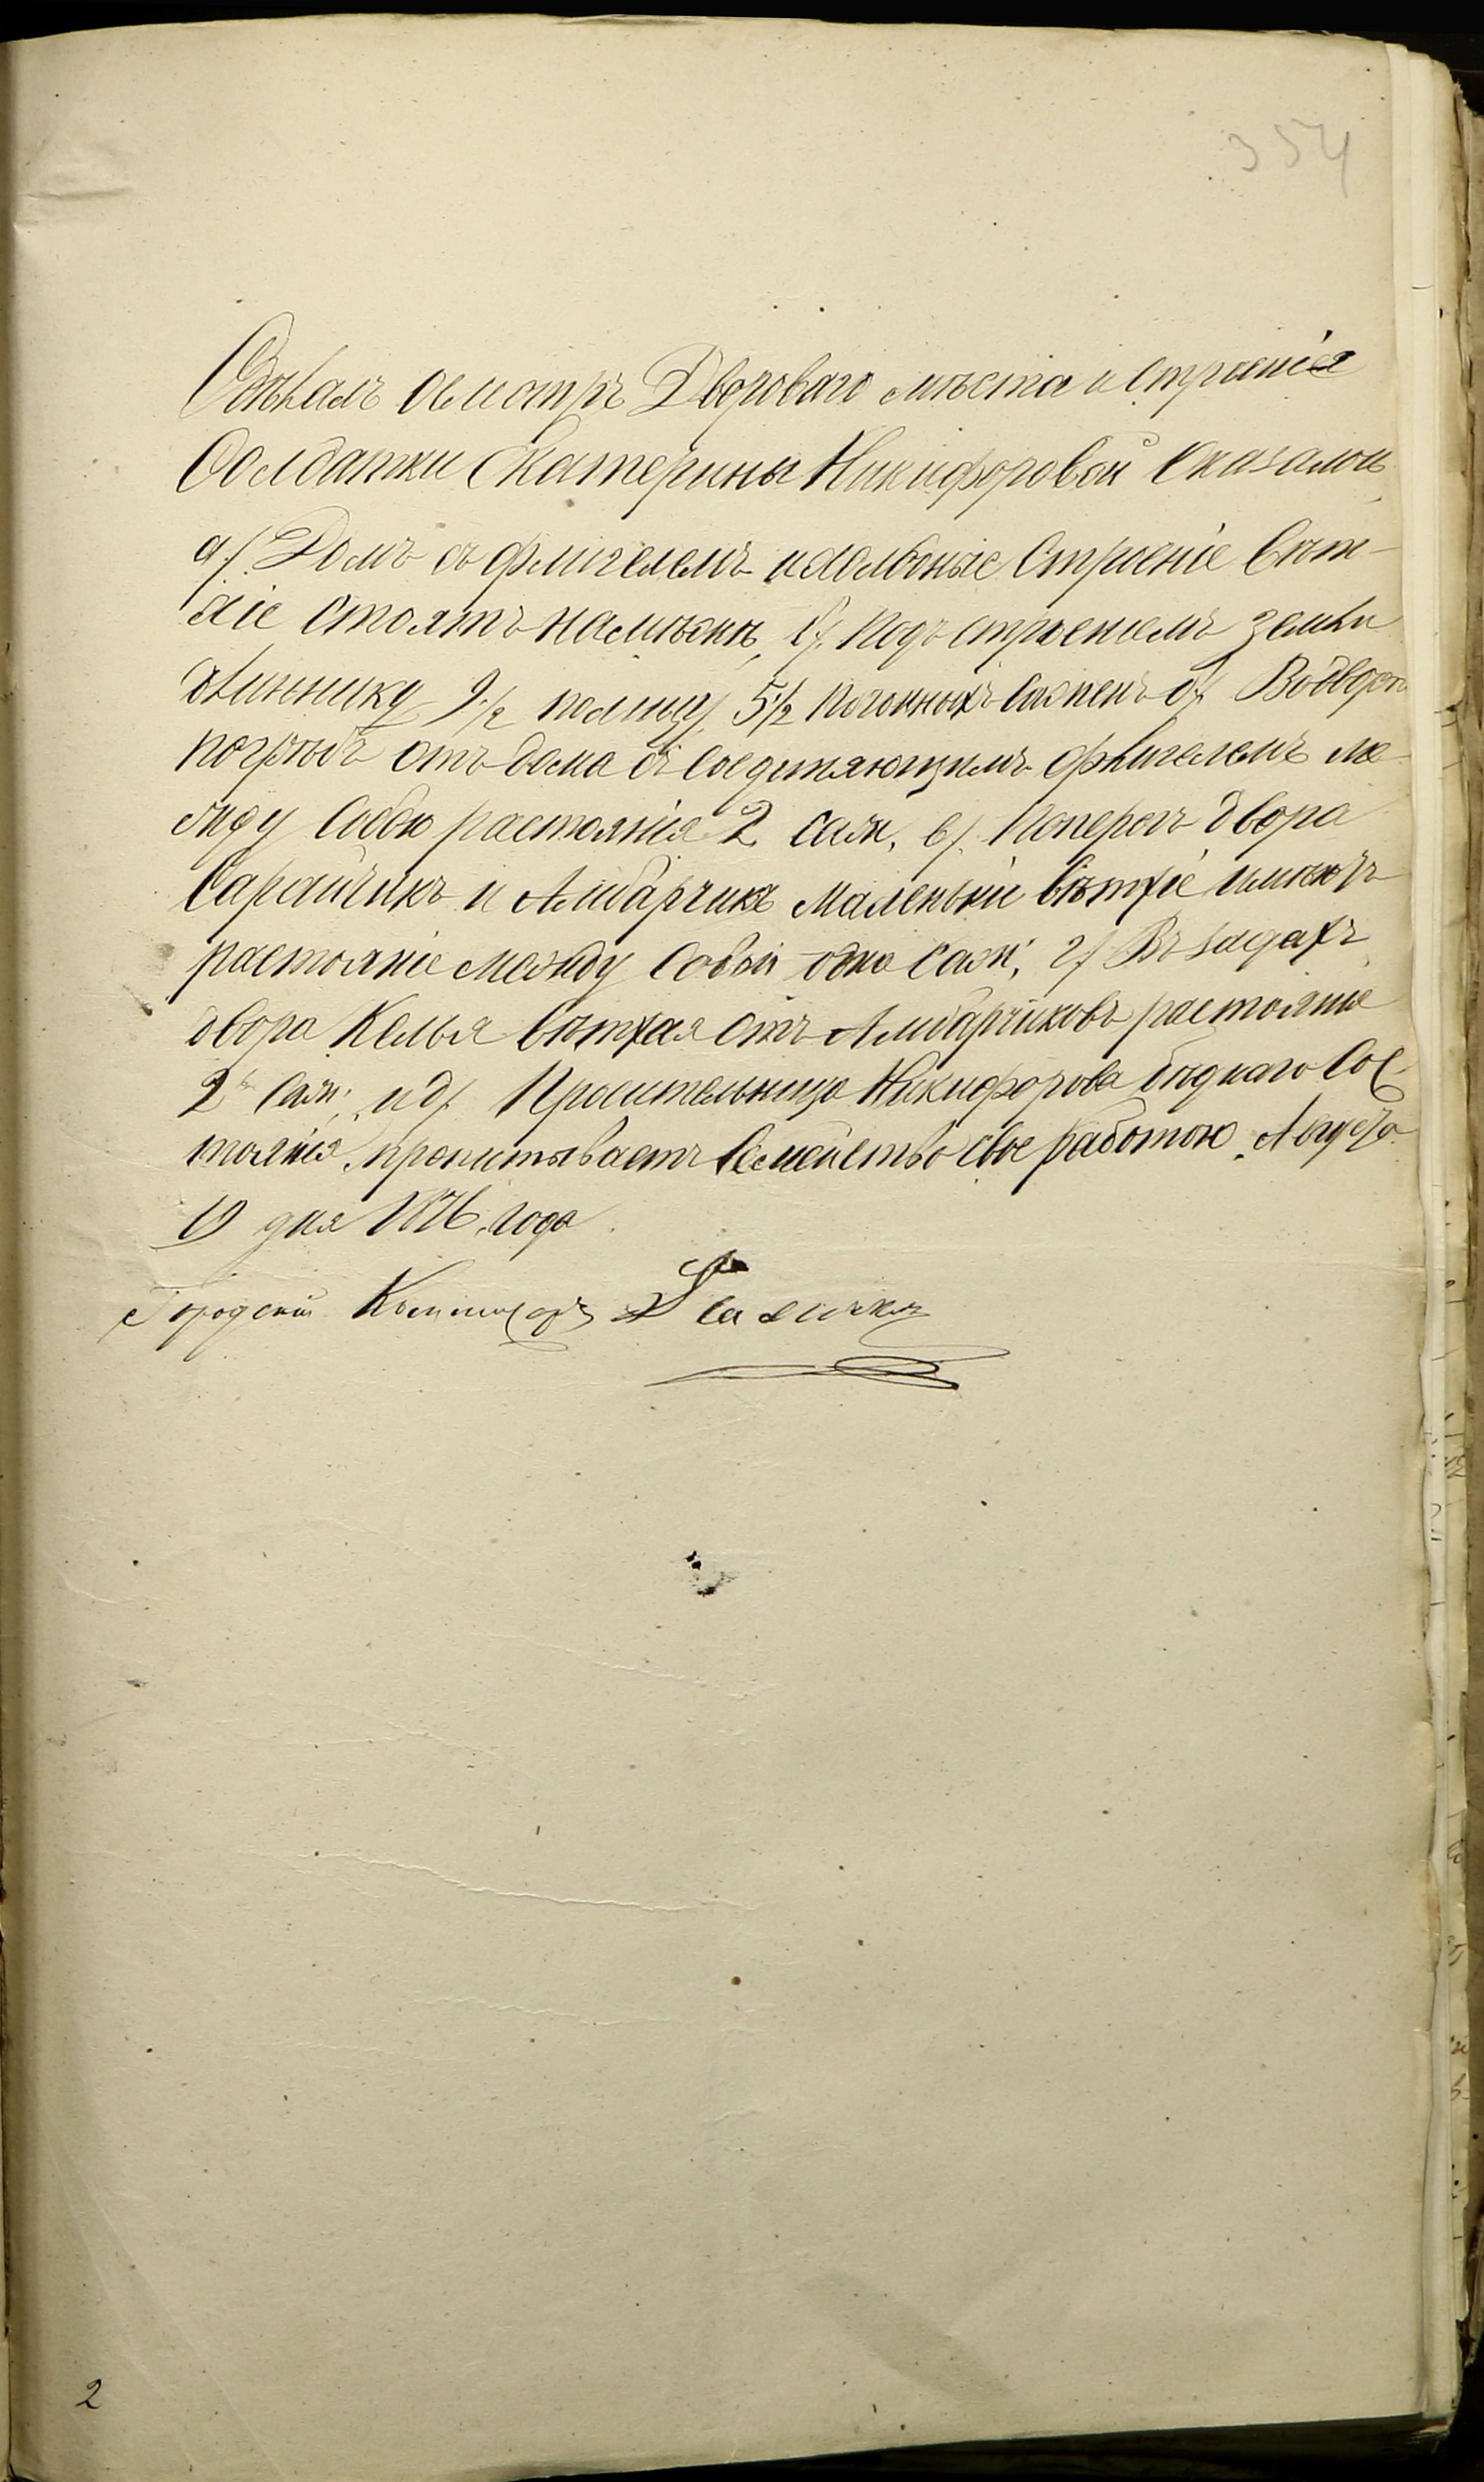 354
Сдѣлалъ осмотръ Двороваго мѣста и строенiя
Солдатки Екатерины Никифоровой Оказалось
а/. Домъ съ флигелемъ Строенiе вѣт-
хiе Стоятъ б/. подъ строенiемъ земли
длиннику 9½ 5½ погонныхъ Сажень
погребъ отъ дома съ соединяющимъ флигелемъ ме
жду Собою растоянiя 2 саж, в/. поперегъ двора
Сарайчикъ и Амбарчикъ Маленькiи вѣтхiе имѣютъ
растоянiе между Собой одна Саж; г/ Въ задахъ
двора Келья вѣтхая отъ Амбарчиковъ растоянiе
2 Саж; и д/. Просительница Никифорова бѣднаго Сос
тоянiя, пропитываетъ Семейство свое работою. Августа
19 дня 1876 года.
Городскiй
2